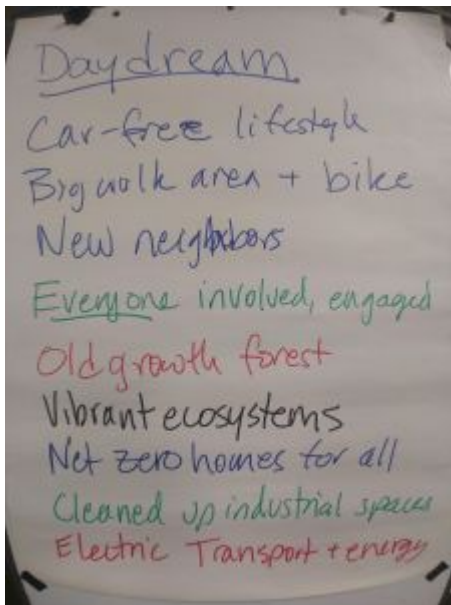 Daydream
Car-free lifestyle
Big walk area + bike
New neighbors
Everyone involved, engaged
Old growth forest
Vibrant ecosystems
Net zero homes for all
Cleaned up industrial spaces
Electric Transport + energy